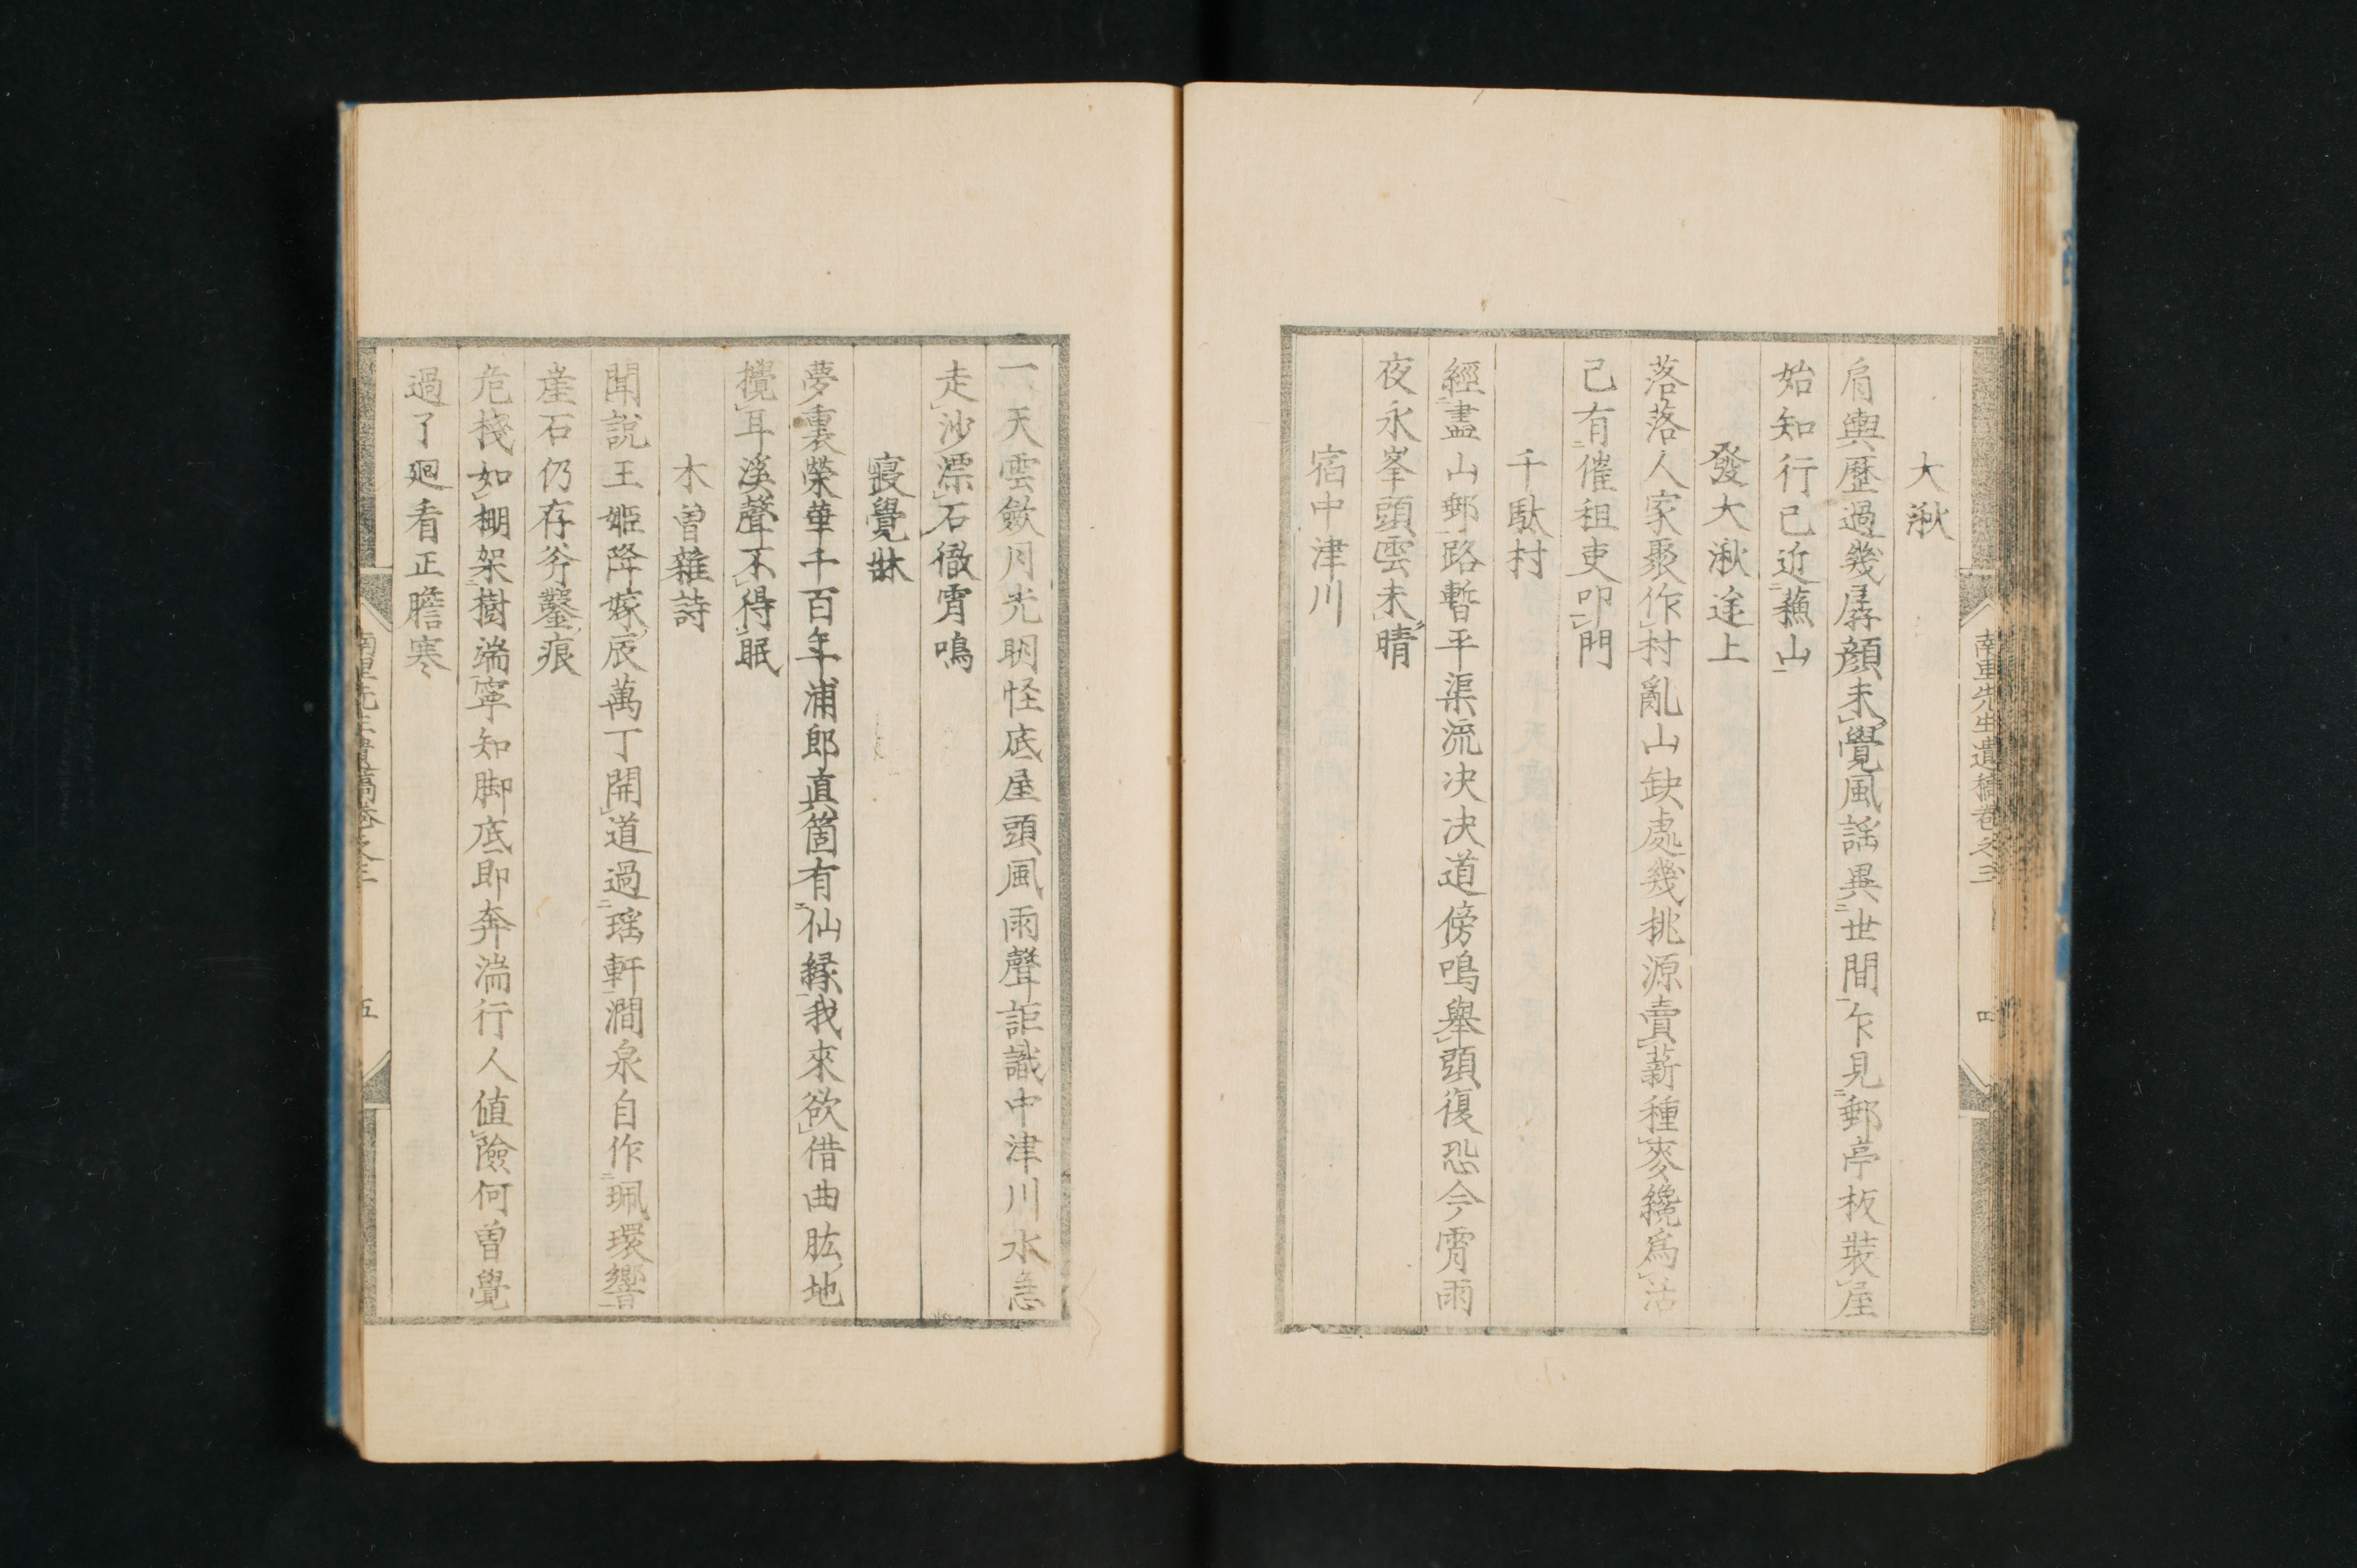 南里先生遺稿卷之三
四
大湫
肩輿歷過幾孱顏未覺風謡異世間乍見郵亭板裝屋
始知行已近蘓山
發大湫途上
落落人家聚作村亂山缺處幾桃源賣薪種麥纔爲活
已有催租吏叩門
千駄村
經盡山郵路暫平渠流决决道傍鳴舉頭復恐今霄雨
夜永峯頭雲未晴
宿中津川
一天雲斂月光明怪底屋頭風雨聲詎識中津川水急
走沙漂石徹霄鳴
寢覺牀
夢裏榮華千百年浦郎真箇有仙緣我來欲借曲肱地
攪耳溪聲不得眠
木曽雜詩
聞說王姬降嫁辰萬丁開道過瑶軒澗泉自作珮環響
崖石仍存斧鑿痕
危棧如棚架樹端寧知脚底即奔湍行人値險何曽覺
過了廻看正膽寒
南里先生遺稿卷之三
五